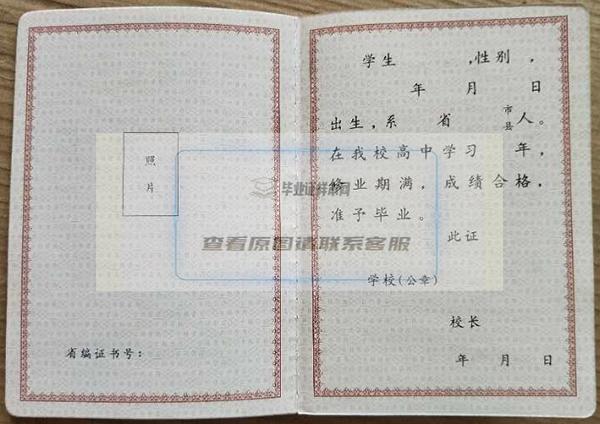 照
片
省编证书号：
学生　　　，性别　，
年　月　日
出生，系　省　市县　人。
在我校高中学习　年，
修业期满，成绩合格，
准予毕业。
此证
学校（公章）
校长
年　月　日
毕业证样本网
查看原图请联系客服